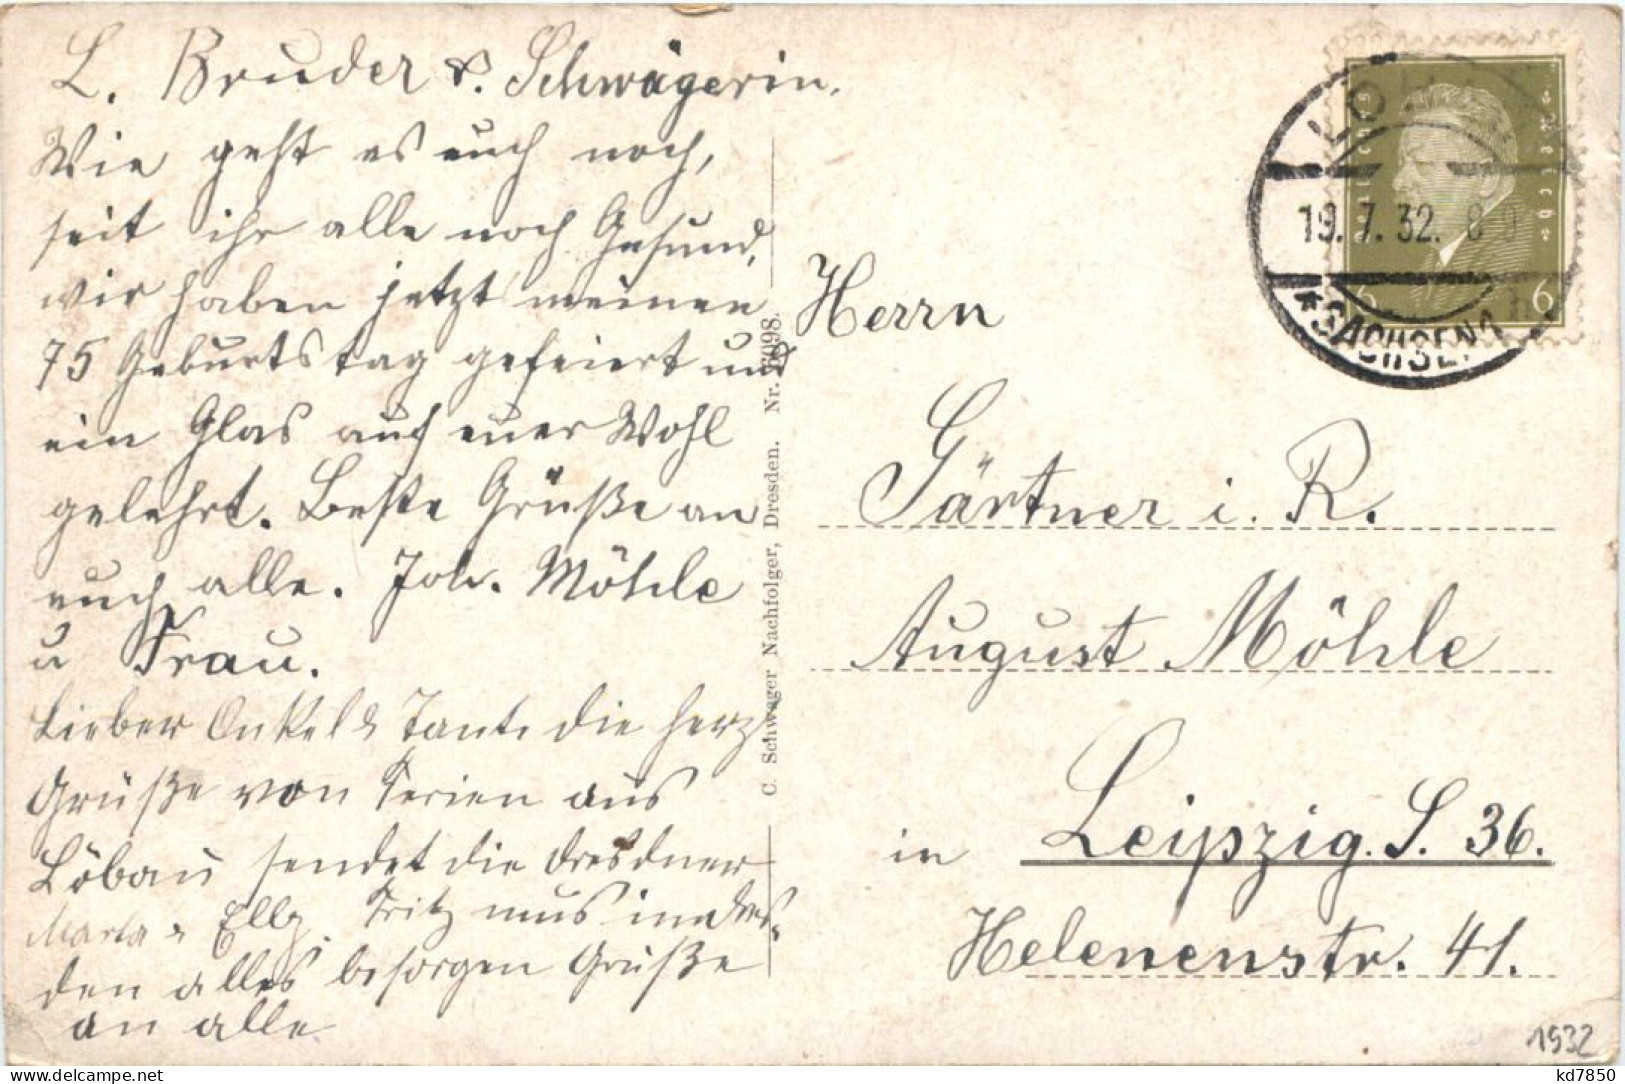 L. Bruder & Schwägerin.
Wie geht es euch noch,
seit ihr alle noch Gesund,
wir haben jetzt meinen
75 Geburtstag gefeiert und
ein Glas auf euer Wohl
gelehrt. Beste Grüße an
euch alle. Joh. Möhle
u Frau.
Lieber Onkel & Tante die herz
Grüße von Ferien aus
Löbau sendet die Dresdner
Marta & Elly. Fritz mus in
den alles besorgen Grüße
an alle
C. Schwager Nachfolger, Dresden. Nr.
LÖBAU
19.7.32. 8
*SACHSEN
6 6
Herrn
Gärtner i. R.
August Möhle
in Leipzig. S. 36.
Helenenstr. 41.
1932
kd7850